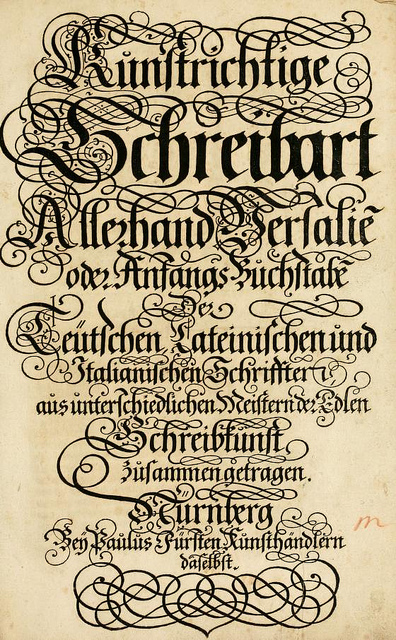 Kunstrichtige
Schreibart
Allerhand Versaliē
oder Anfangs Buchstabē
Der
Teütschen Lateinischen und
Italianischen Schrifften
aus unterschiedlichen Meistern der Edlen
Schreibkunst
zusammen getragen.
Nürnberg
Bey Paulus Fürsten Kunsthändlern
daselbst.
m